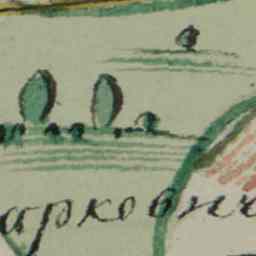 аркович